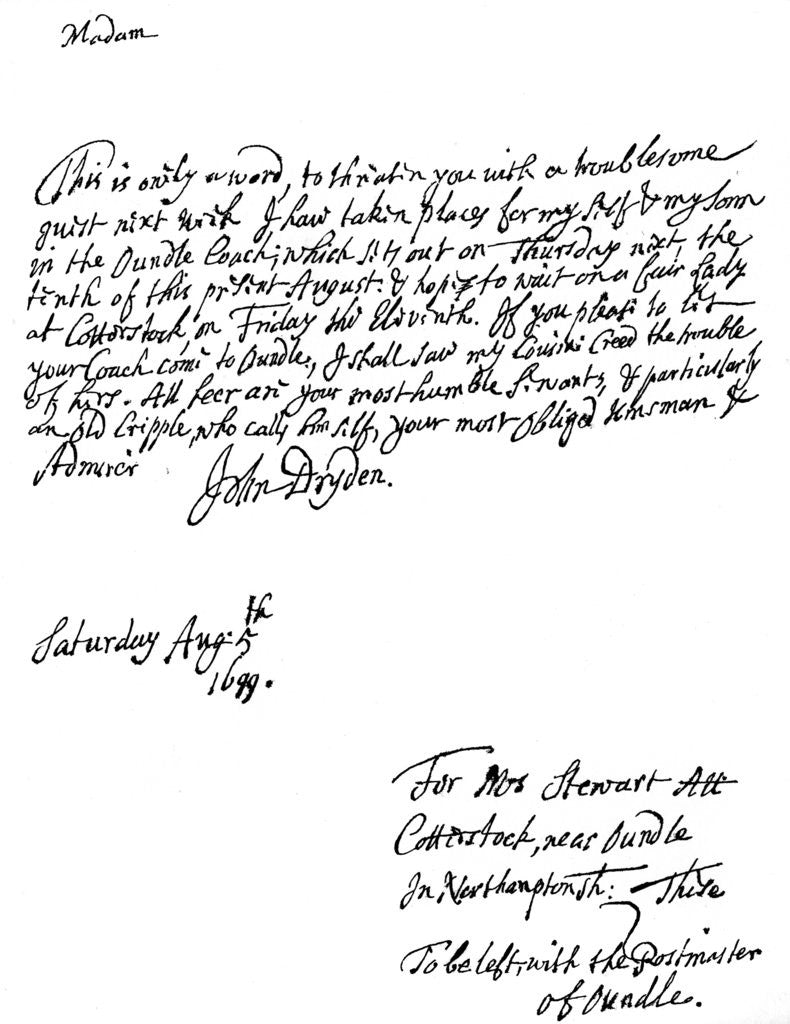 Madam
This is onely a word, to threaten you with a troublesome
guest next week I have taken places for my self & my Sonn
in the Oundle Coach; which sets out on Thursday next, the
tenth of this present August: & hope to wait on a fair Lady
at Cotterstock, on Friday the Eleventh. If you please to let
your Coach come to Oundle, I shall save my Cousin Creed the trouble
of hers. All heer are your most humble Servants, & particularly
an old Cripple, who calls him self, your most Obliged Kinsman &
Admirer
John Dryden.
Saturday Aug: 5th
1699.
For Mrs Stewart Att
Cotterstock, near Oundle
In Northamptonsh: These
To be left, with the Postmaster
of Oundle.